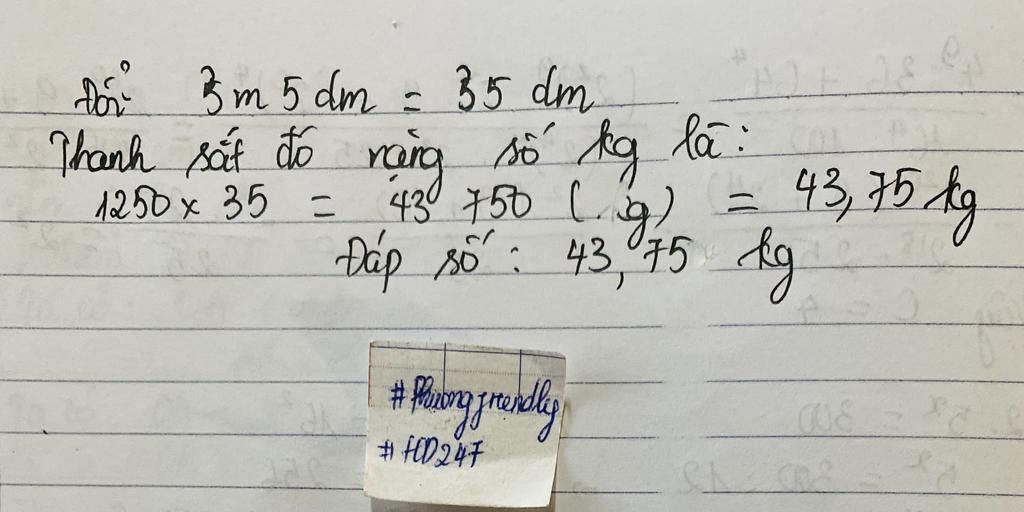 Đổi: 3m 5dm = 35 dm
Thanh sắt đó nặng số kg là:
1250 x 35 = 43 750 (g) = 43,75 kg
Đáp số: 43,75 kg
#Phuongfreindly
#HD247